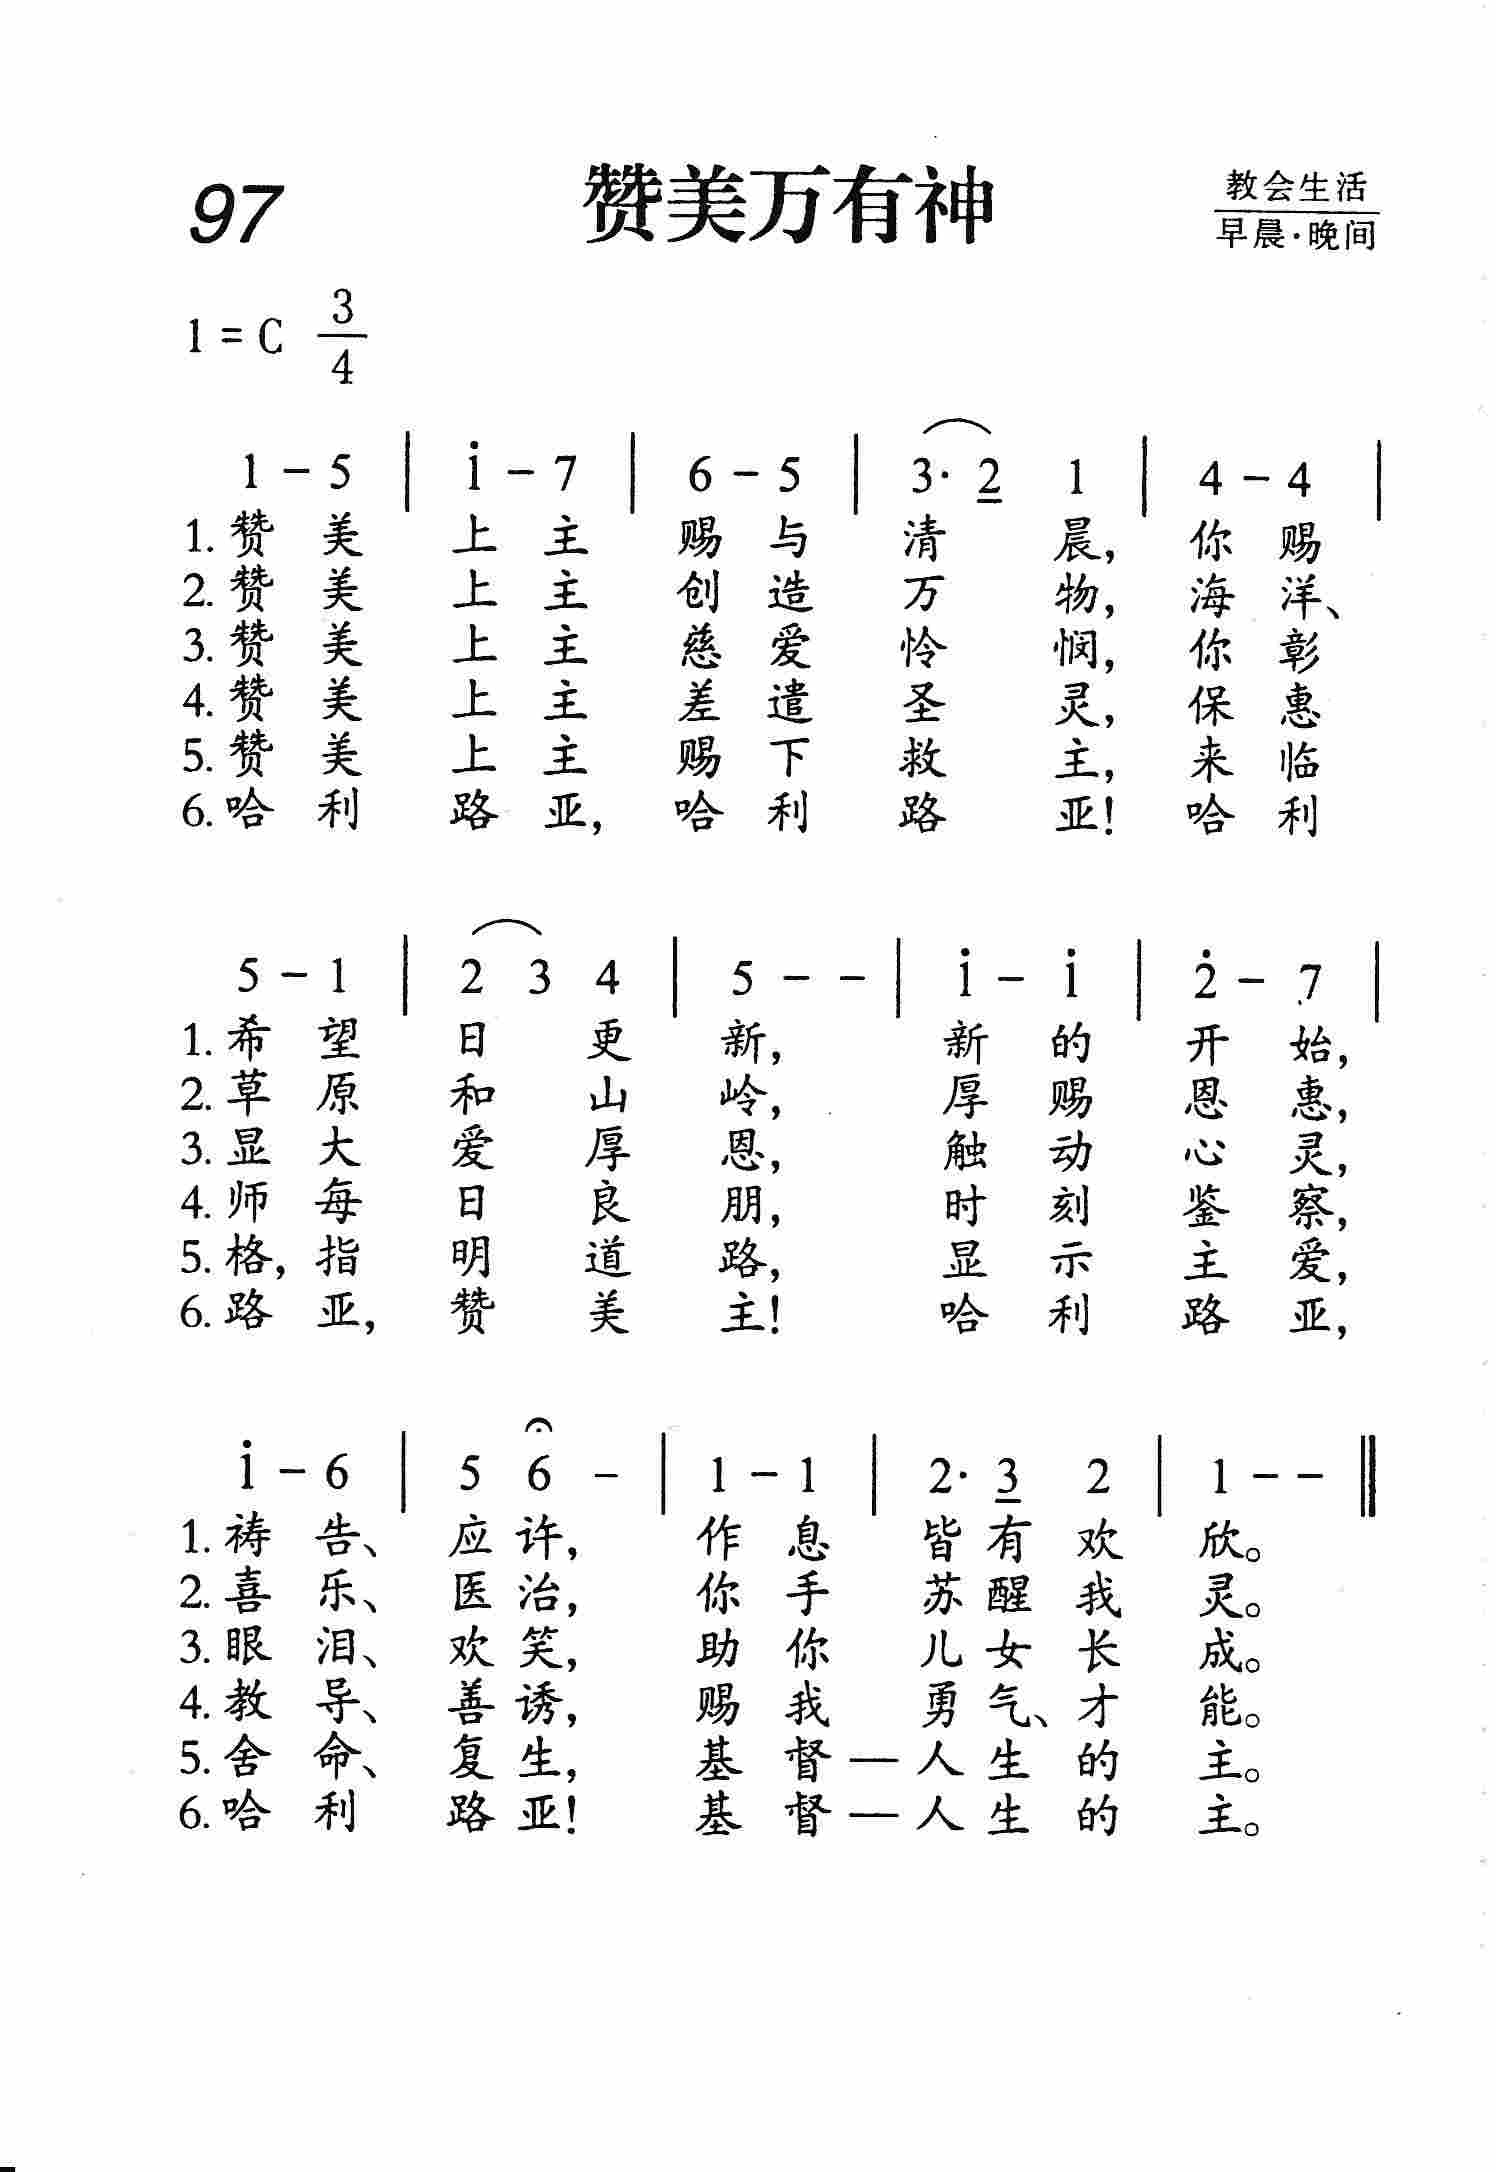 97
赞美万有神
教会生活
早晨·晚间
1 = C 3/4
1 - 5 | i - 7 | 6 - 5 | 3· 2 1 | 4 - 4 |
1. 赞美上主赐与清晨，你赐
2. 赞美上主创造万物，海洋、
3. 赞美上主慈爱怜悯，你彰
4. 赞美上主差遣圣灵，保惠
5. 赞美上主赐下救主，来临
6. 哈利路亚，哈利路亚！哈利
5 - 1 | 2 3 4 | 5 - - | i - i | 2̇ - 7 |
1. 希望日更新，新的开始，
2. 草原和山岭，厚赐恩惠，
3. 显大爱厚恩，触动心灵，
4. 师每日良朋，时刻鉴察，
5. 格，指明道路，显示主爱，
6. 路亚，赞美主！哈利路亚，
i - 6 | 5 6 - | 1 - 1 | 2· 3 2 | 1 - - ‖
1. 祷告、应许，作息皆有欢欣。
2. 喜乐、医治，你手苏醒我灵。
3. 眼泪、欢笑，助你儿女长成。
4. 教导、善诱，赐我勇气、才能。
5. 舍命、复生，基督—人生的主。
6. 哈利路亚！基督—人生的主。